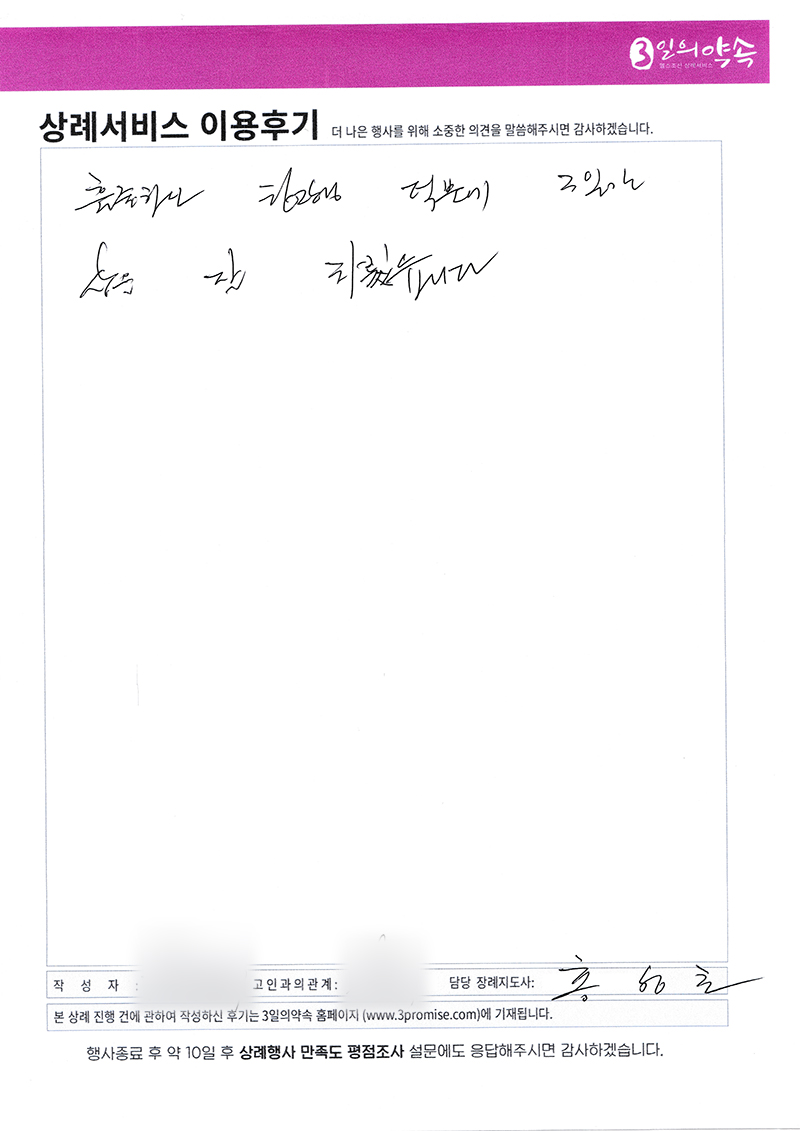 3일의약속
헬스조선 상례서비스
상례서비스 이용후기 더 나은 행사를 위해 소중한 의견을 말씀해주시면 감사하겠습니다.
훌륭하신 진행 덕분에 3일간
상을 잘 치뤘습니다
작 성 자 : 고인과의관계: 담당 장례지도사: 홍 성
본 상례 진행 건에 관하여 작성하신 후기는 3일의약속 홈페이지 (www.3promise.com)에 기재됩니다.
행사종료 후 약 10일 후 상례행사 만족도 평점조사 설문에도 응답해주시면 감사하겠습니다.